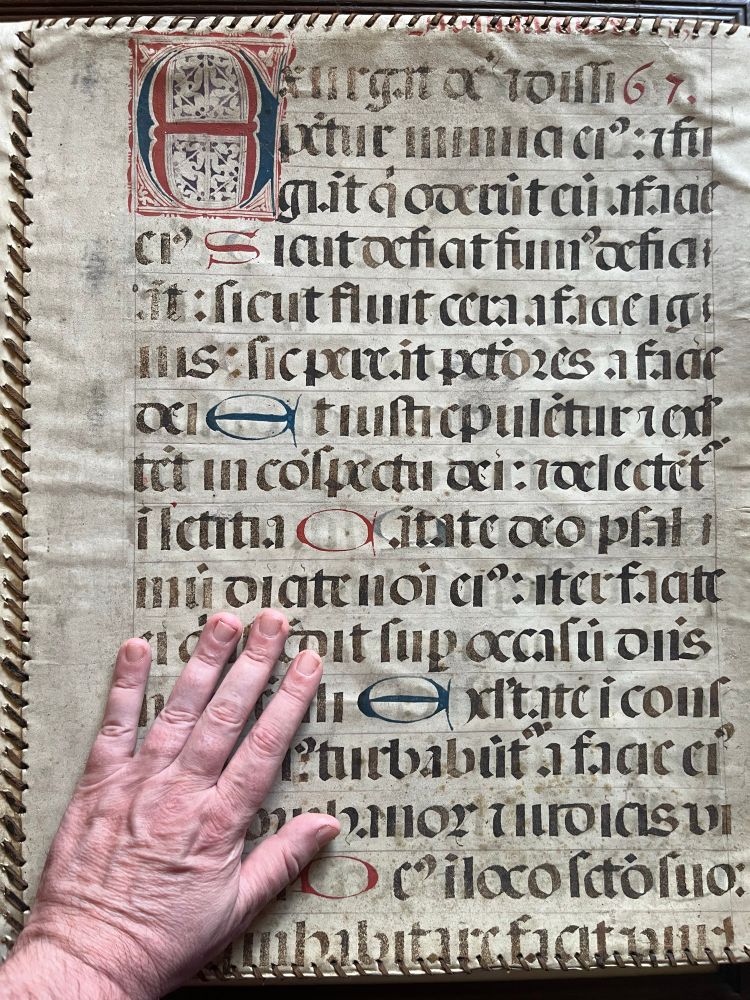 Exurgat de⁹ ⁊ dissi 67.
pẽtur inimici ei⁹: ⁊ fu
giãt q̇ oderũt eũ a facie
ei⁹ Sicut deficit fum⁹ defici
ãt: sicut fluit cera a facie ig
nis: sic pereãt pctõres a facie
dei Et iusti epulẽtur ⁊ exl
tẽt in cõspectu dei: ⁊ delectẽt
i letitia Cãtate deo psal
mũ dicite noi ei⁹: iter facite
ei dit sup occasũ dñs
Exltate i cons
turbabũt a facie ei⁹
orphanor ⁊ iudicis vi
De⁹ i loco sctõ suo:
inhabitare facit uni